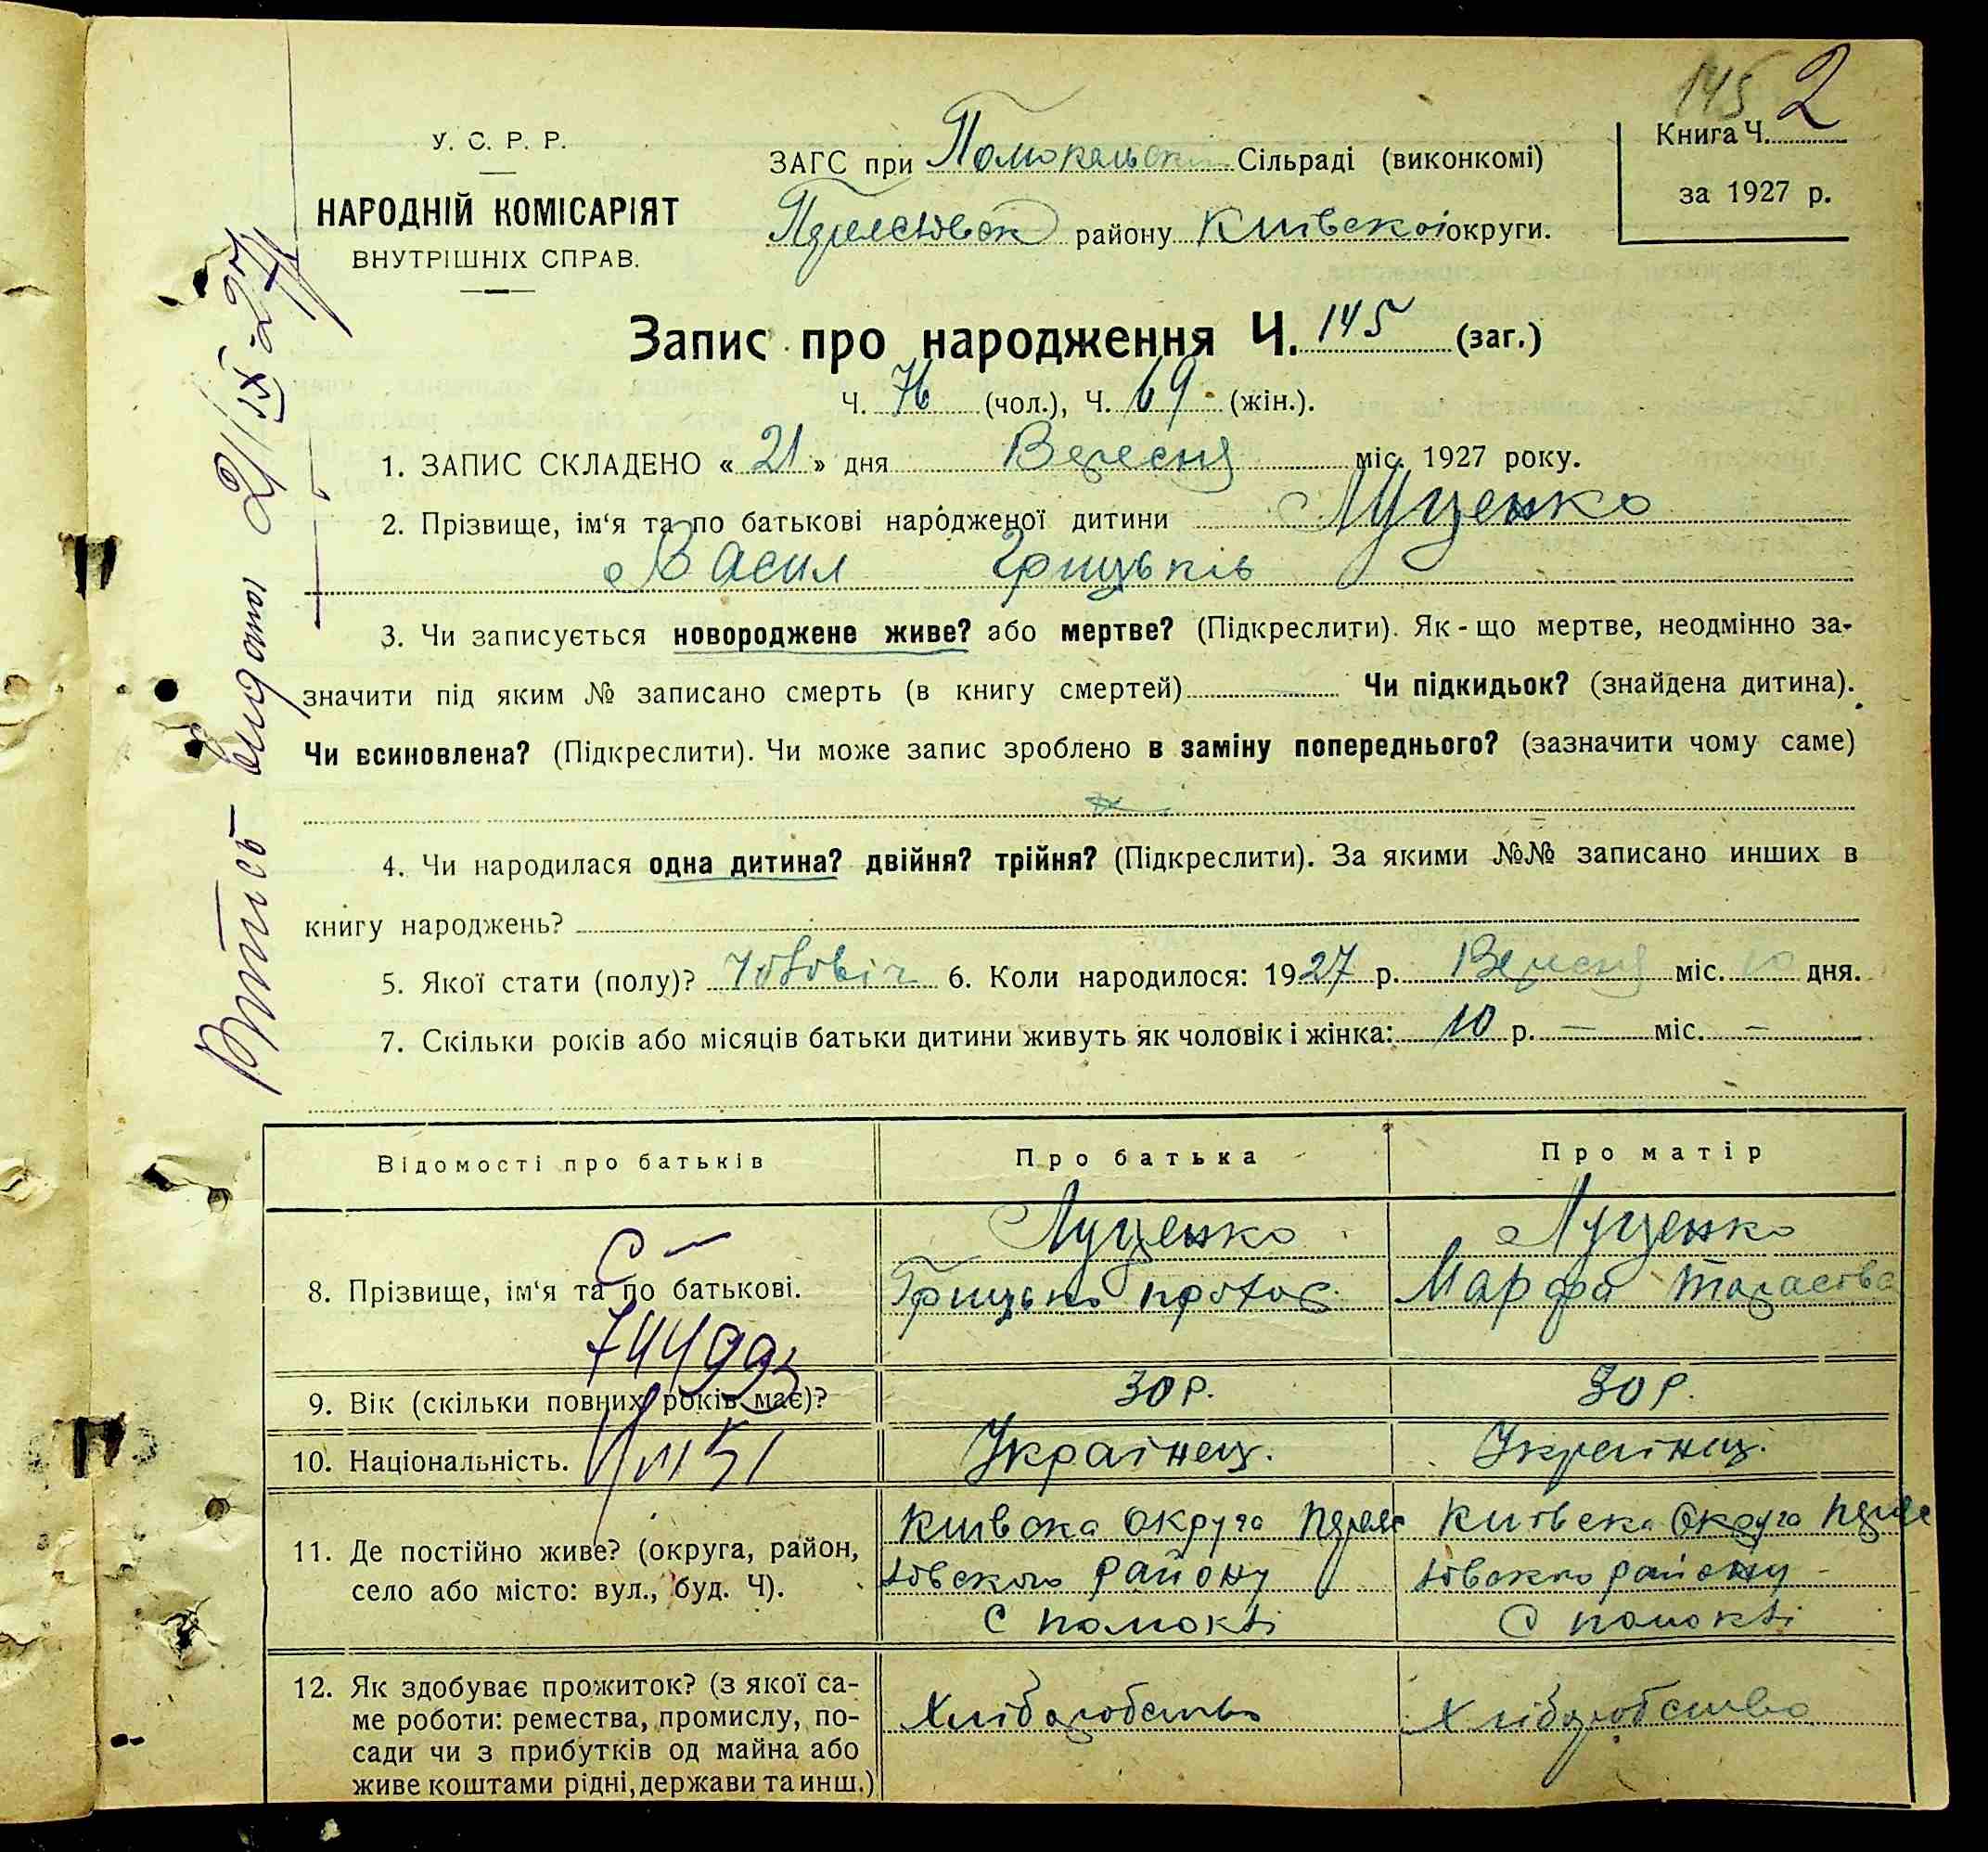 145 2
У. С. Р. Р.
НАРОДНІЙ КОМІСАРІЯТ
ВНУТРІШНІХ СПРАВ.
ЗАГС при Помокельскі Сільраді (виконкомі)
району Київскоі округи.
Книга Ч.
за 1927 р.
Запис про народження Ч. 145 (заг.)
Ч. 76 (чол.), Ч. 69 (жін.).
1. ЗАПИС СКЛАДЕНО « 21 » дня Вересня міс. 1927 року.
2. Прізвище, ім'я та по батькові народженої дитини Луценко
Васил Грицьків
3. Чи записується новороджене живе? або мертве? (Підкреслити). Як-що мертве, неодмінно за-
значити під яким № записано смерть (в книгу смертей) Чи підкидьок? (знайдена дитина).
Чи всиновлена? (Підкреслити). Чи може запис зроблено в заміну попереднього? (зазначити чому саме)
4. Чи народилася одна дитина? двійня? трійня? (Підкреслити). За якими №№ записано инших в
книгу народжень?
5. Якої стати (полу)? Чоловіч 6. Коли народилося: 1927 р. Вересня міс. 10 дня.
7. Скільки років або місяців батьки дитини живуть як чоловік і жінка: 10 р. — міс. —
видано 21/IX-27
Відомості про батьків
Про батька
Про матір
8. Прізвище, ім'я та по батькові.
Луценко
Грицько
Луценко
Марфа Тарасова
744993
9. Вік (скільки повних років має)?
30 р.
30 р.
10. Національність.
Українец.
Українец.
11. Де постійно живе? (округа, район,
село або місто: вул., буд. Ч).
Київска округа Переяс
ловского району
С помоклі
Київска Округа Переяс
ловского району
С помоклі
12. Як здобуває прожиток? (з якої са-
ме роботи: ремества, промислу, по-
сади чи з прибутків од майна або
живе коштами рідні, держави та инш.)
Хліборобство
Хліборобство